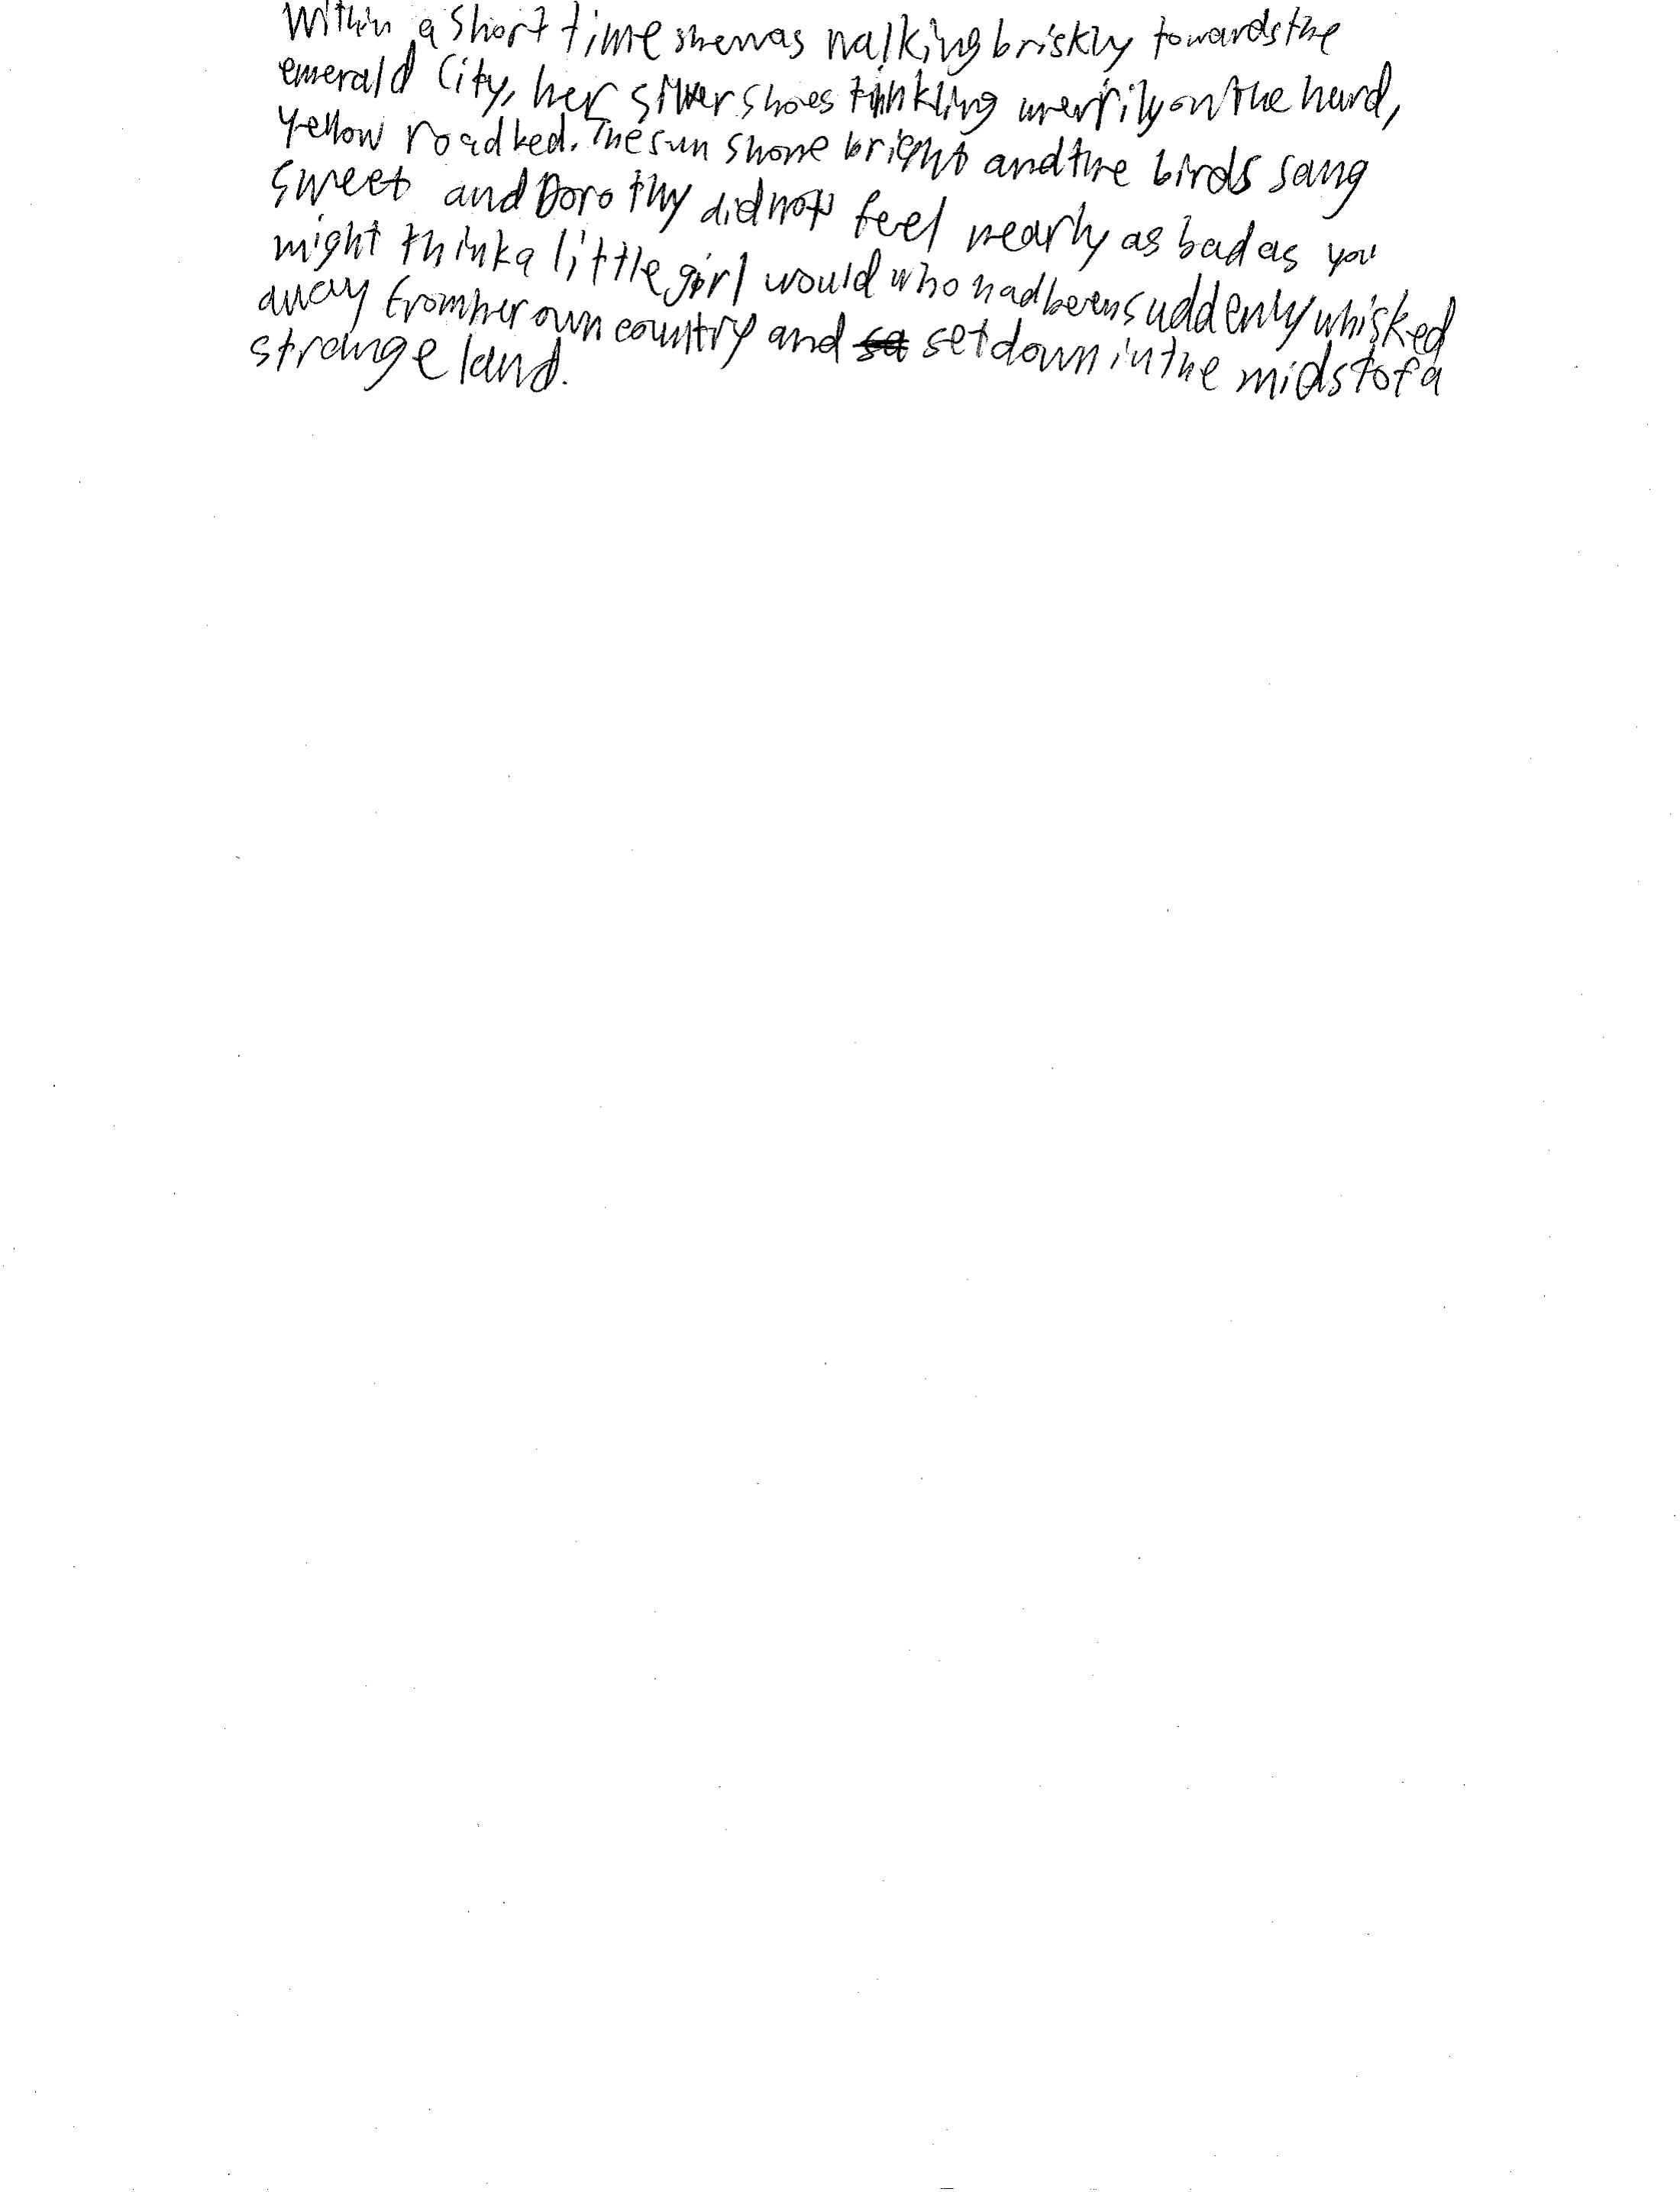 Within a short time she was walking briskly towards the
emerald City, her silver shoes tinkling merrily on the hard,
yellow roadbed. The sun shone bright and the birds sang
sweet and Dorothy did not feel nearly as bad as you
might think a little girl would who had been suddenly whisked
away from her own country and sa set down in the midst of a
strange land.